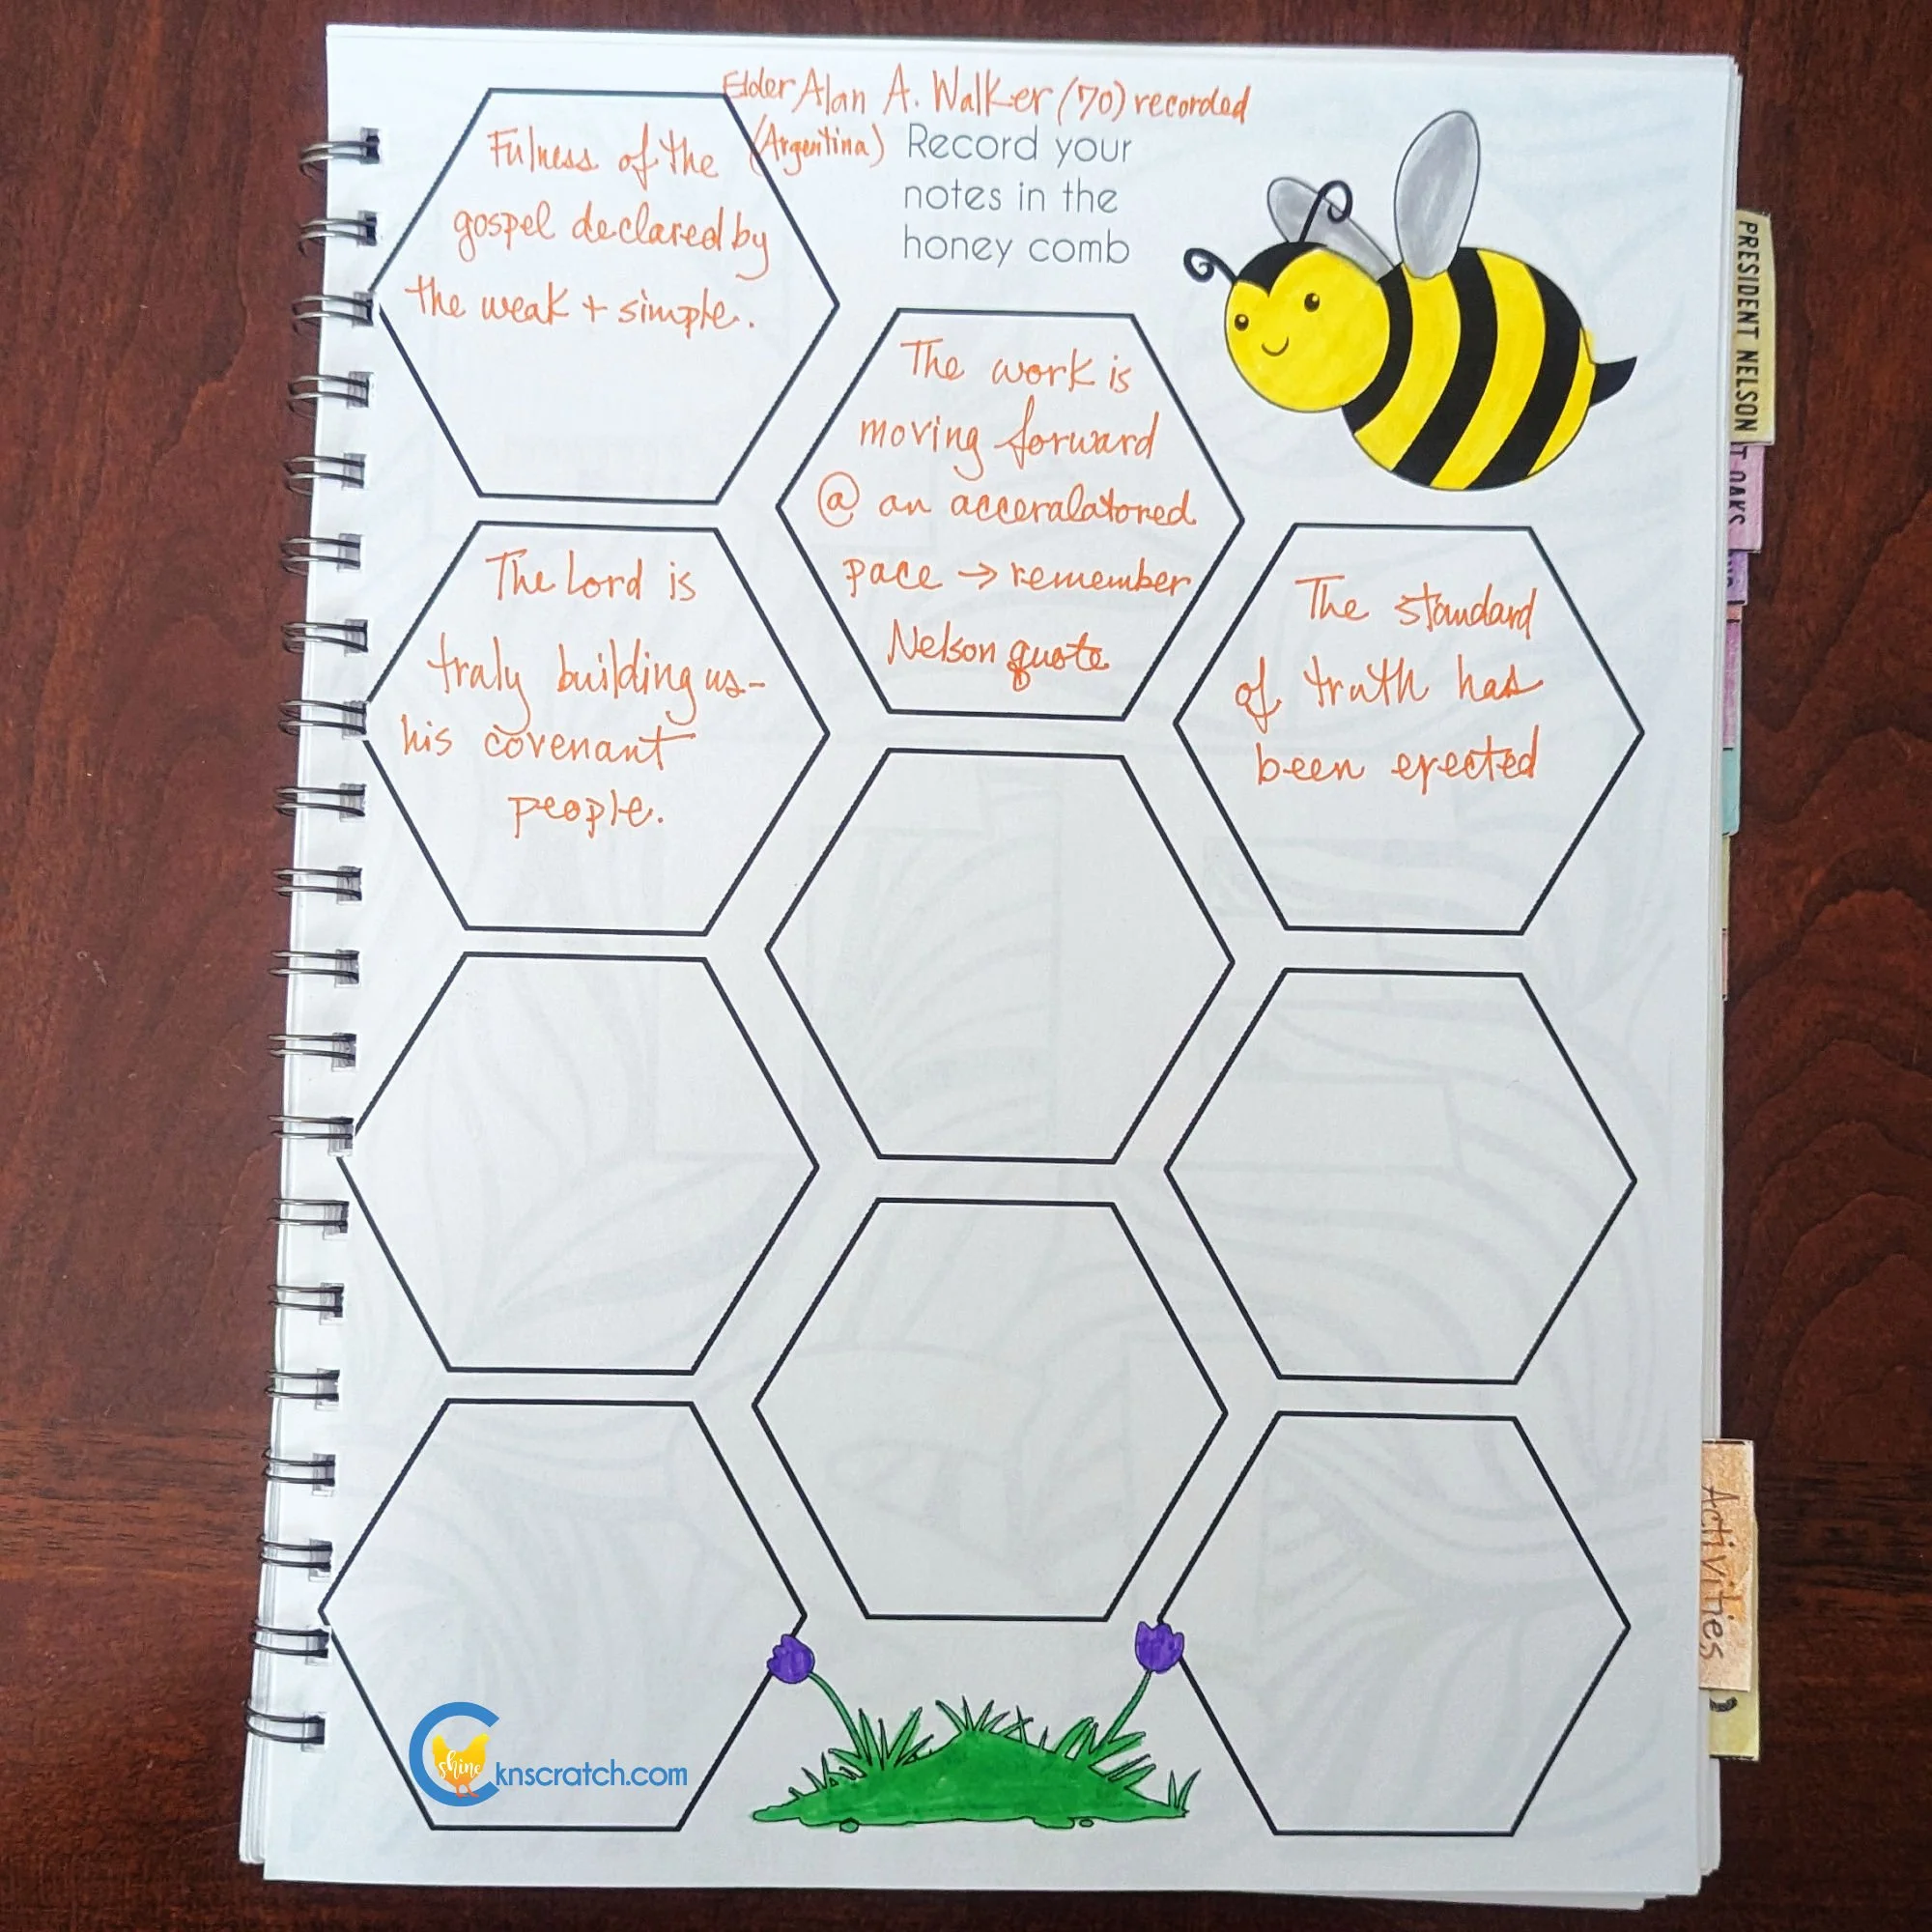 Elder Alan A. Walker (70) recorded
(Argentina)
Record your
notes in the
honey comb
Fulness of the
gospel declared by
the weak + simple.
The work is
moving forward
@ an acceralatored
pace → remember
Nelson quote
The Lord is
truly building us-
his covenant
people.
The standard
of truth has
been erected
PRESIDENT NELSON
T OAKS
Activities
shine
knscratch.com